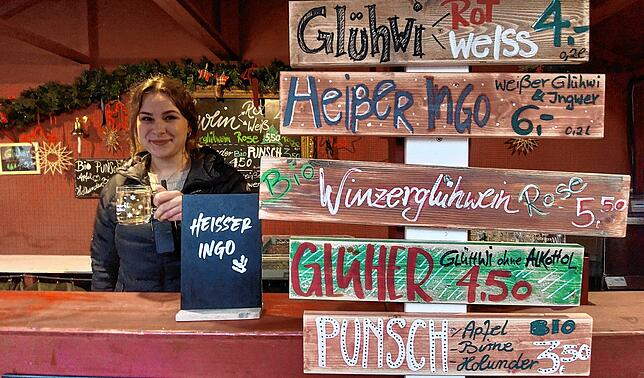 Glühwi
Rot 4.-
Weiss
0,2l
Heißer INGO
weißer Glühwi
& Ingwer
6,-
0,2l
Bio Winzerglühwein Rose
5,50
GLÜHER
Glühwi ohne Alkohol
4.50
PUNSCH
Apfel BIO
Birne
Holunder 3,50
HEISSER
INGO
wein Rot
Weiß
Winzerglühwein Rose 5.50
Bio PUNSCH
4.50
Bio PUNSCH